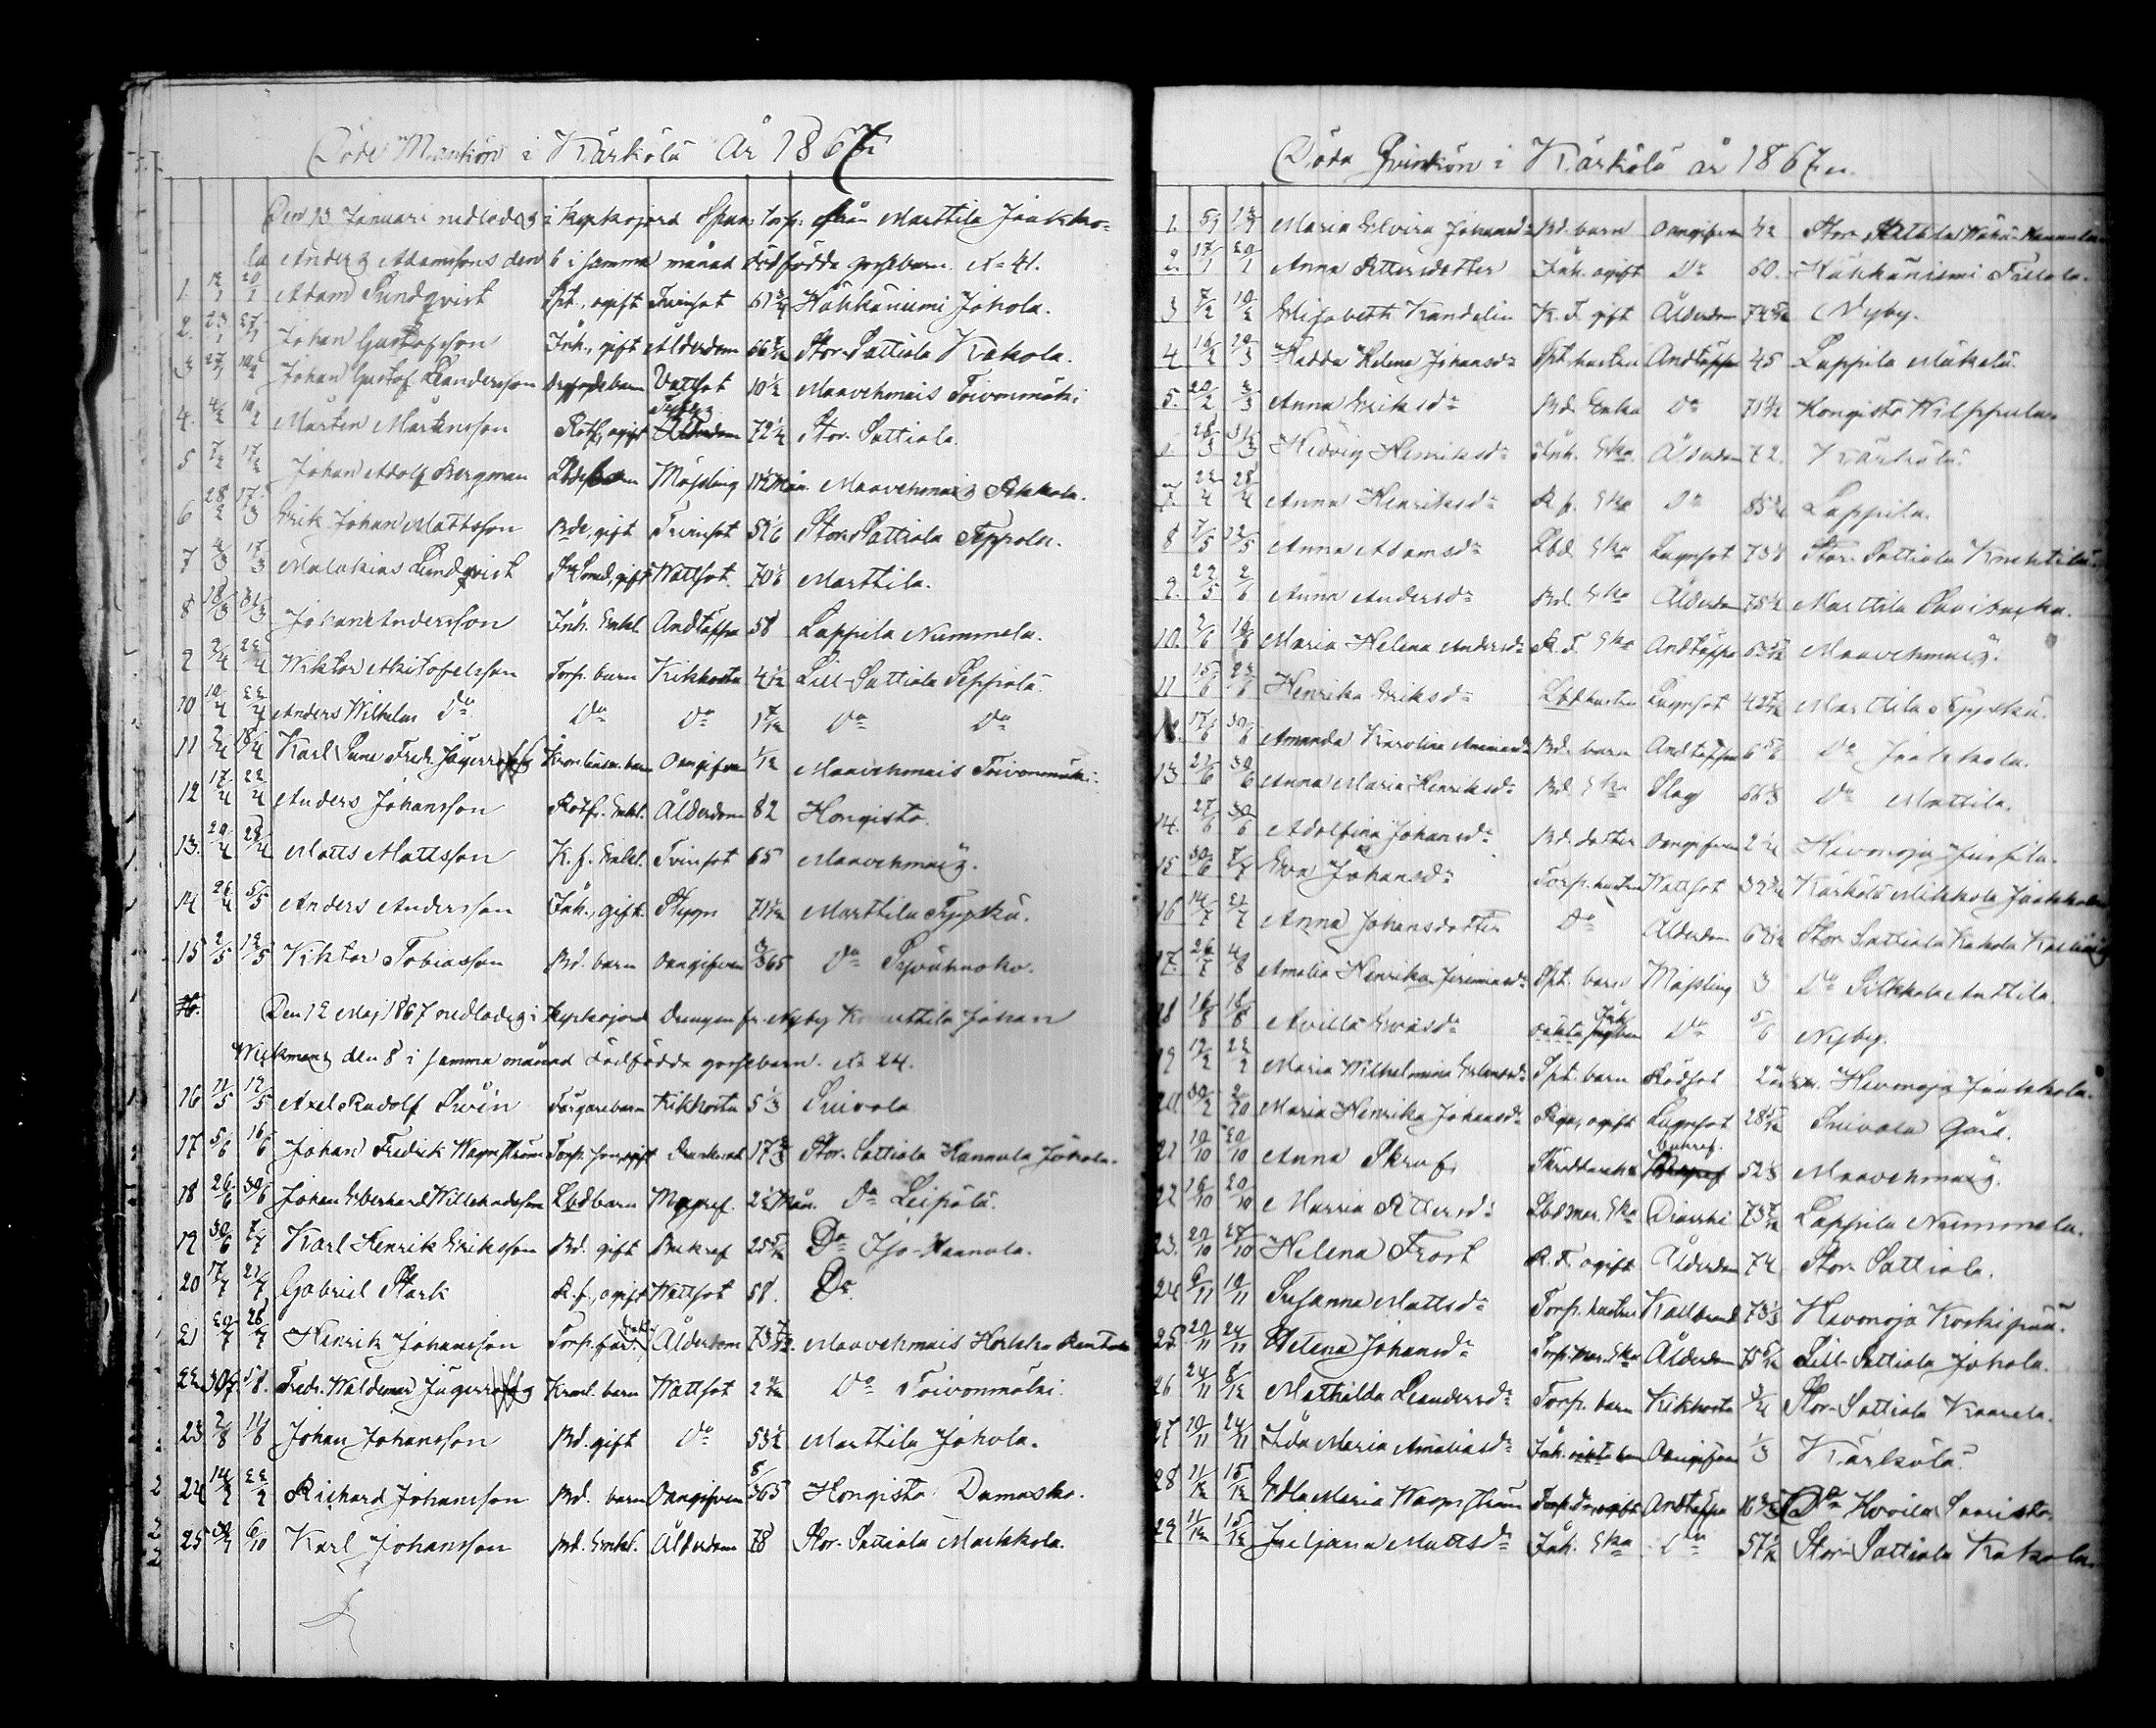 Döde Mankön i Kärkölä År 1867
Den 13 Januari nedlades i kyrkojord Span. torp. från Marttila Jaakko-
la Anders Adamssons den 6 i samma månad dödfödda gossebarn. No 41.
1. 12/1 20/1 Adam Sundqvist Spt., ogift Tvinsot 61 3/4 Hähkäniemi Johola.
2. 23/1 27/1 Johan Gustafsson Inh., gift Ålderdom 66 Stor-Sattiala Kakola.
3 27/1 10/2 Johan Gustaf Leandersson barn Vattsot 10 1/2 Maavehmais Toivonmäki
4. 4/2 10/2 Mårten Mårtensson Rotf., ogift Ålderdom 72 1/4 Stor-Sattiala
5 7/2 17/2 Johan Adolf Bergman barn Mässling Mån. Maavehmais Pekkola.
6 28/2 17/3 Erik Johan Mattsson Bde, gift Tvinsot 51 1/6 Stor-Sattiala Seppola.
7 4/3 17/3 Malakias Lindqvist gift Wattsot. 70 1/6 Marttila.
8 18/3 31/3 Johan Andersson Inh. Enkl. Andtäppa 58 Lappila Nummela.
9 2/4 22/4 Wiktor Akitofelsson Torp. barn Kikhosta 4 1/12 Lill-Sattiala Seppola.
10 10/4 22/4 Anders Wilhelm Do Do Do 1 7/12 Do Do
11 2/4 18/4 Karl Fredr. Jägerroos barn Oangifven 1/12 Maavehmais Toivonmäki.
12 17/4 22/4 Anders Johansson Rotf. Enkl. Ålderdom 82 Hongisto
13. 20/4 28/4 Matts Mattsson K. f. Enkl. Tvinsot 65 Maavehmais.
14 26/4 5/5 Anders Andersson Inh., gift. Stygn 71 1/12 Marttila Syyskä.
15 2/5 12/5 Viktor Tobiasson Bd. barn Oangifven 3/365 Do
16. Den 12 Maj 1867 nedlades i kyrkojord drängen fr. Nyby Konnttila Johan
Wickmans den 8 i samma månad dödfödda gossebarn. No 24.
16 11/5 19/5 Axel Rudolf Svén Färgarebarn Kikhosta 5 1/3 Suivala
17 5/6 16/6 Johan Fredrik Wagnström Torp. son ogift Drunknad 17 2/3 Stor-Sattiala Hannula Johola.
18 26/6 30/6 Johan Eberhard Willehadsson Lbd barn Magref. 2 1/2 Mån. Do Leipola.
19 30/6 7/7 Karl Henrik Eriksson Bd. gift Bukref 25 5/12 Do Iso-Hannula.
20 17/7 21/7 Gabriel Stark R. f., ogift Wattsot 58. Do.
21 20/7 28/7 Henrik Johansson Torp. far. Enkl. Ålderdom 73 7/12. Maavehmais Heikko Rantala
22 30/7 5/8. Fredr. Waldemar Jägerroos Kronl. barn Wattsot 2 Do Toivonmäki.
23 2/8 11/8 Johan Johansson Bd. gift Do 53 1/2 Marttila Johola.
24 14/9 22/9 Richard Johansson Bd. barn Oangifven 8/365 Hongisto Damasko.
25 30/9 6/10 Karl Johansson Bd. Enkl. Ålderdom 78 Stor-Sattiala Markkola.
Döda Qvinkön i Kärkölä år 1867.
1. 5/1 13/1 Maria Elvira Johansdr Bd. barn Oangifven 1/12 Stor-Sattiala Wähä-Hannula
2. 17/1 20/1 Anna Pettersdotter Inh. ogift Do 60. Hähkäniemi
3 7/2 10/2 Elisabeth Kandelin K. F. gift Ålderdom 74 Nyby.
4 16/2 10/3 Hedda Helena Johansdr Spt. hustru Andtäppa 45 Lappila Mäkelä.
5. 20/2 3/3 Anna Eriksdr Bd. Enka Do 71 1/2 Hongisto Wilppula
28/3 31/3 Hedvig Henriksdr Inh. Eka. Ålderdom 72. Kärkölä.
7. 22/4 28/4 Anna Henriksdr R. f. Eka Do 85 Lappila
8 7/5 12/5 Anna Adamsdr Lbd Eka Lugnsot 73 Stor-Sattiala
9. 22/5 2/6 Anna Andersdr Bd. Eka Ålderdom 75 Marttila
10. 2/6 16/6 Maria Helena Andersdr R. F. Eka Andtäppa 63 Maavehmais.
11 15/6 23/6 Henrika Eriksdr Lbd hustru Lugnsot 42 Marttila Syyskä.
17/6 30/6 Amanda Karolina Bd. barn Andtäppa 6 5/6 Do Jaakkola.
13. 22/6 30/6 Anna Maria Henriksdr Bd. Eka Slag 66 1/3 Do Mattila.
14. 27/6 30/6 Adolfina Johansdr Bd. dotter Oangifven 2 1/4 Hevonoja Jussila.
15 30/6 7/7 Eva Johansdr Torp. hustru Wattsot 39 Kärkölä Mikkola Jaakkola
16 14/7 21/7 Anna Johansdotter Do Ålderdom Stor-Sattiala Kakola
17. 26/7 4/8 Amalia Henrika Jeremiasdr Spt. barn Mässling 3 Do Pilkkola Anttila.
18 16/8 18/8 Avilla Evasdr oäkta barn Do 5/6 Nyby.
19 19/9 22/9 Maria Wilhelmina Spt. barn Rödsot 2 Hevonoja Jaakkola.
20 30/9 2/10 Maria Henrika Johansdr Piga, ogift Lugnsot 28 5/12 Suivala Gård.
21 10/10 20/10 Anna Skruf Bukref. 52 1/3 Maavehmais.
22 16/10 20/10 Maria Pettersdr Lbd mor. Eka Diarrhé 73 7/12 Lappila Nummela.
23. 20/10 27/10 Helena Frost R. F. ogift Ålderdom 74 Stor-Sattiala.
24 9/11 10/11 Susanna Mattsdr Torp. hustru Kallbrand 73 1/3 Hevonoja Koskipää.
25 20/11 24/11 Helena Johansdr Torp. mor. Eka Ålderdom 75 Lill-Sattiala Johola.
26 24/11 8/12 Mathilda Leandersdr Torp. barn Kikhosta 3/4 Stor-Sattiala Kaarela.
27 10/11 24/11 Ida Maria Amaliasdr Inh. oäkta barn Oangifven 1/3 Kärkölä
28 11/12 15/12 Edla Maria Wagnström Andtäppa Do Hovila Saaristo.
29 11/12 15/12 Juljana Mattsdr Inh. Eka Do 57 Stor-Sattiala Kakola.